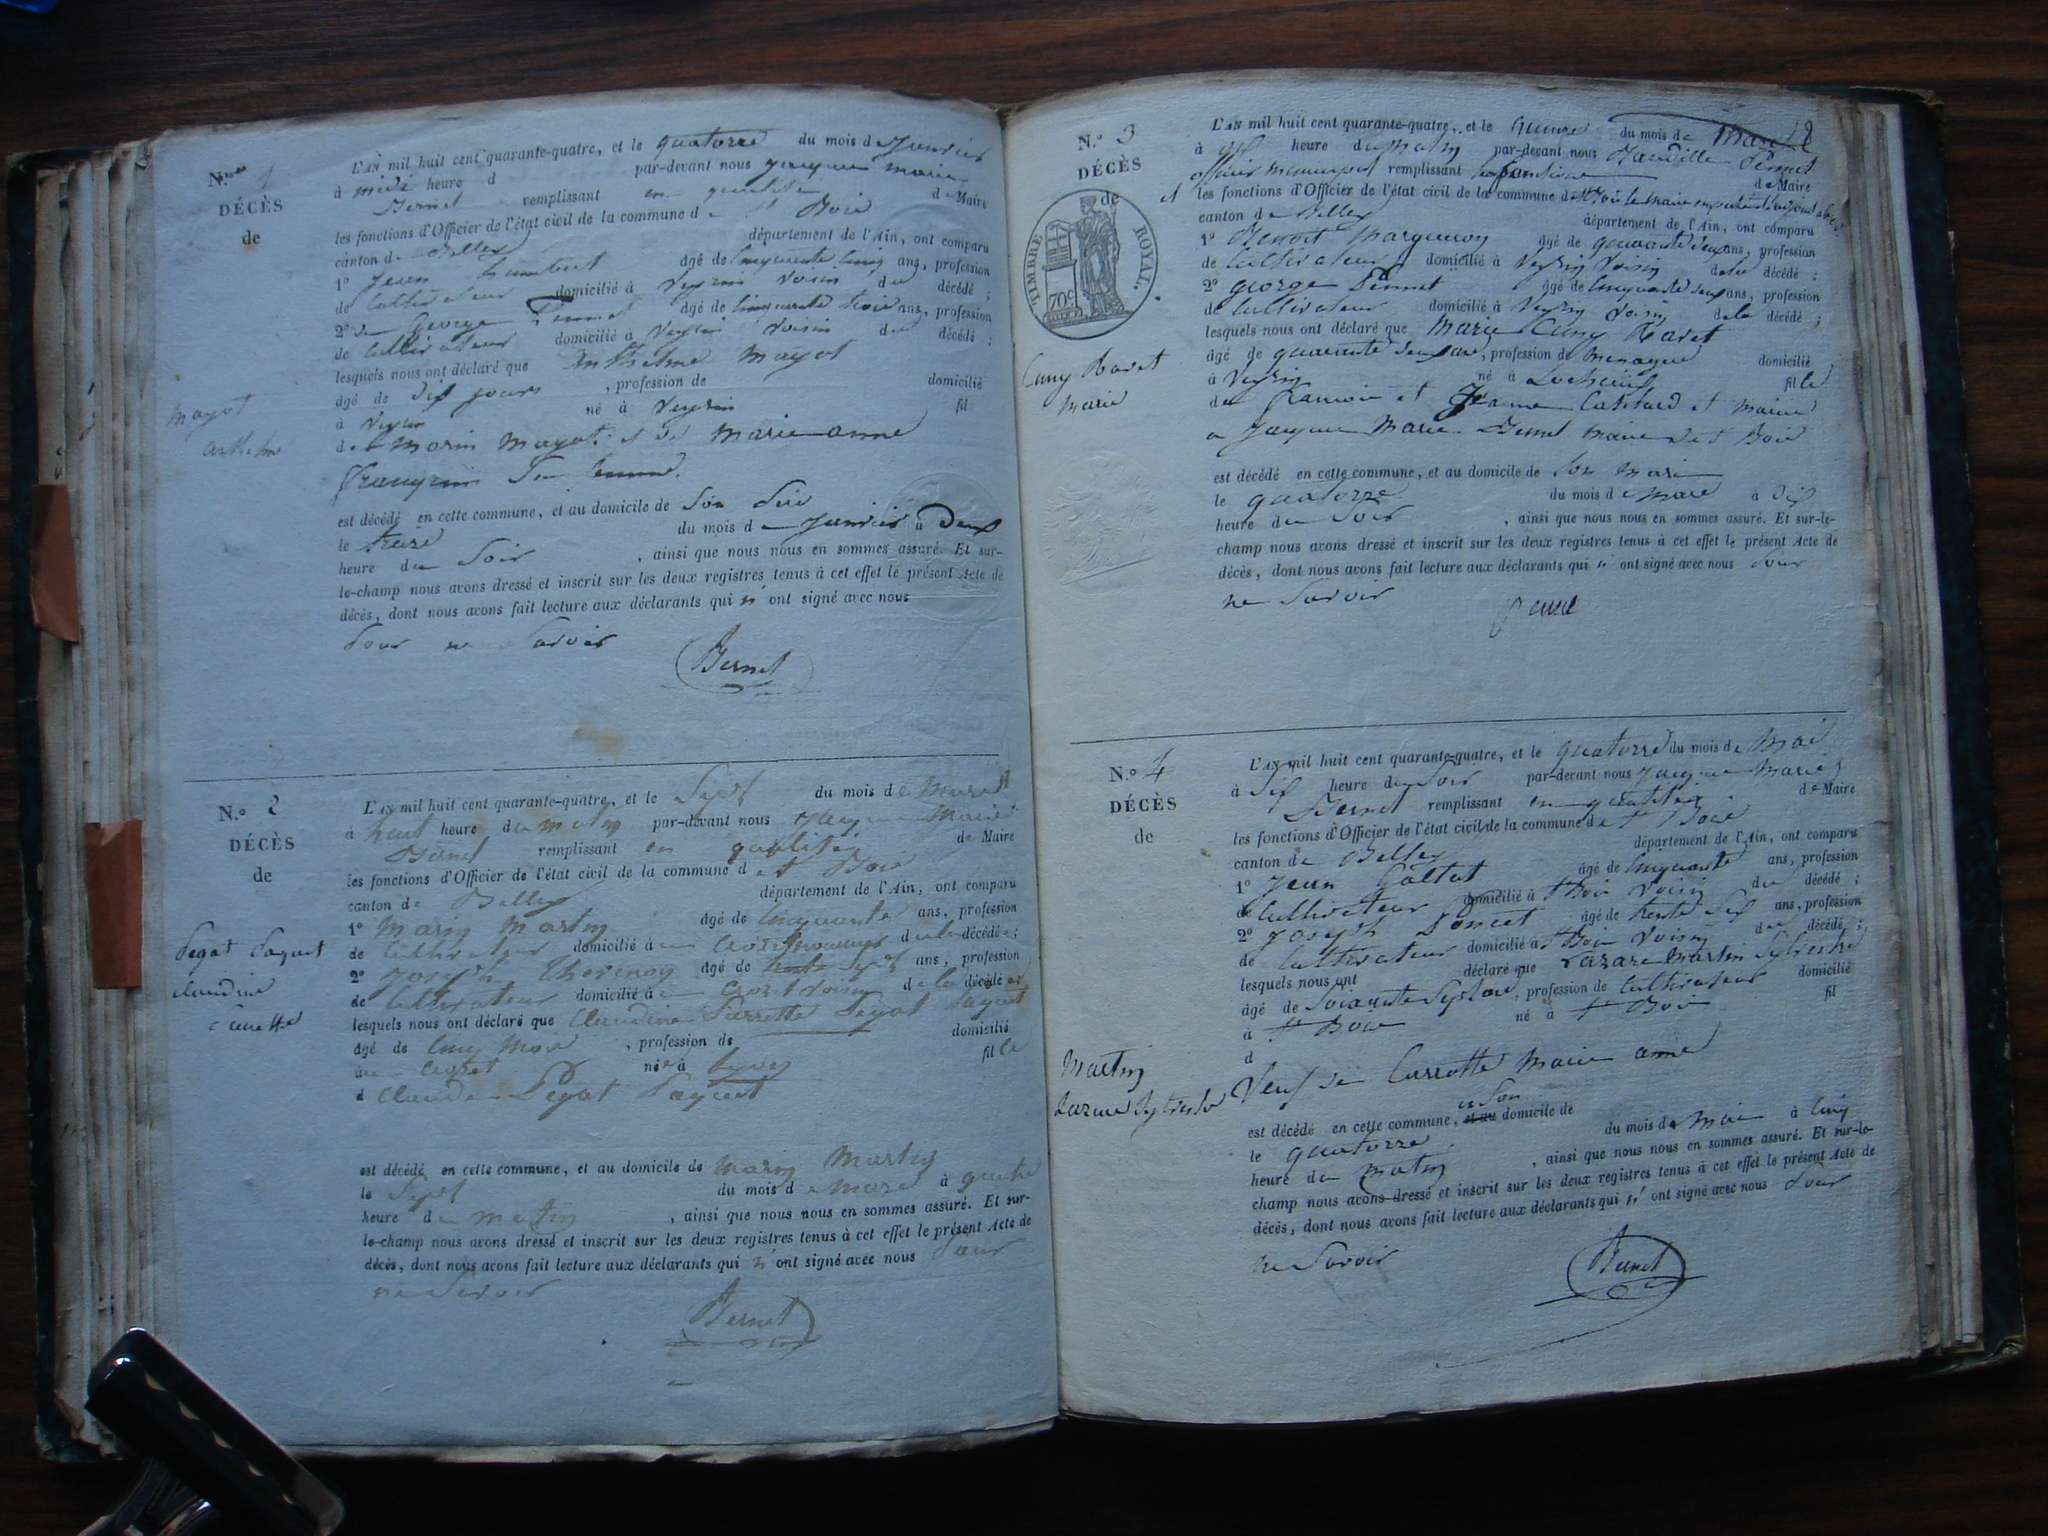 N.º 1
DÉCÈS
de
mayot
anthelme
L'AN mil huit cent quarante-quatre, et le quatorze du mois d e Janvier
à midi heure d par-devant nous Jacques marie
Bernet remplissant en qualité de Maire
les fonctions d'Officier de l'état civil de la commune d e St Bois
canton d e Belley département de l'Ain, ont comparu
1º Jean humbert âgé de cinquante cinq ans, profession
de cultivateur domicilié à Veyrin voisin du décédé ;
2º George Pernet âgé de cinquante trois ans, profession
de cultivateur domicilié à Veyrin voisin du décédé ;
lesquels nous ont déclaré que Anthelme Mayot
âgé de dix jours , profession de domicilié
à Veyrin né à Veyrin fil
de Marin Mayot et de Marie anne
son
est décédé en cette commune, et au domicile de son père
le treize du mois d e Janvier à deux
heure du soir , ainsi que nous nous en sommes assuré. Et sur-
le-champ nous avons dressé et inscrit sur les deux registres tenus à cet effet le présent Acte de
décès, dont nous avons fait lecture aux déclarants qui n' ont signé avec nous
pour ne savoir
Bernet
N.º 2
DÉCÈS
de
pegat paquet
claudine
L'AN mil huit cent quarante-quatre, et le Sept du mois d e Mars
à huit heure du matin par-devant nous Jacques Marie
Bernet remplissant en qualité de Maire
les fonctions d'Officier de l'état civil de la commune d e St Bois
canton de Belley département de l'Ain, ont comparu
1º Marin Martin âgé de cinquante ans, profession
de cultivateur domicilié à de la décédée ;
2º Joseph âgé de sept ans, profession
de cultivateur domicilié à voisin de la décédée
lesquels nous ont déclaré que Claudine Pegat paquet
âgé de cinq Mois , profession de domicilié
née à fille
d Claude Pegat Paquet
est décédé en cette commune, et au domicile de Marin Martin
le Sept du mois d e Mars à quatre
heure du matin , ainsi que nous nous en sommes assuré. Et sur-
le-champ nous avons dressé et inscrit sur les deux registres tenus à cet effet le présent Acte de
décès, dont nous avons fait lecture aux déclarants qui n' ont signé avec nous pour
ne Savoir
Bernet
N.º 3
DÉCÈS
de
TIMBRE ROYAL.
70c
Cuny
Marie
L'AN mil huit cent quarante-quatre, et le quinze du mois de Mars
à dix heure du Matin par-devant nous Pernet
officier municipal remplissant de Maire
les fonctions d'Officier de l'état civil de la commune d e St Bois le Maire
canton d e Belley département de l'Ain, ont comparu
1º Benoit âgé de quarante deux ans, profession
de cultivateur domicilié à Veyrin voisin de la décédé ;
2º George Pernet âgé de cinquante deux ans, profession
de cultivateur domicilié à Veyrin voisin de la décédé ;
lesquels nous ont déclaré que Marie Cuny
âgé de quarante deux ans, profession de Menagere domicilié
à Veyrin né à fille
de francois et Jeanne et mariée
a Jacques Marie Bernet Maire de St Bois
est décédé en cette commune, et au domicile de son mari
le quatorze du mois d e Mars à dix
heure du soir , ainsi que nous nous en sommes assuré. Et sur-le-
champ nous avons dressé et inscrit sur les deux registres tenus à cet effet le présent Acte de
décès, dont nous avons fait lecture aux déclarants qui n' ont signé avec nous pour
ne savoir
N.º 4
DÉCÈS
de
Martin
Lazare Sylvestre
L'AN mil huit cent quarante-quatre, et le quatorze du mois de Mai
à dix heure du Soir par-devant nous Jacques Marie
Bernet remplissant en qualité de Maire
les fonctions d'Officier de l'état civil de la commune de St Bois
canton de Belley département de l'Ain, ont comparu
1º Jean âgé de cinquante ans, profession
de cultivateur domicilié à St Bois voisin du décédé ;
2º Joseph Poncet âgé de trente dix ans, profession
de cultivateur domicilié à St Bois voisin du décédé ;
lesquels nous ont déclaré que Lazare Martin Sylvestre
âgé de soixante sept ans, profession de cultivateur domicilié
à St Bois né à St Bois fil
d
Veuf de Marie anne
est décédé en cette commune, en son et au domicile de
le quatorze du mois de Mai à cinq
heure du matin , ainsi que nous nous en sommes assuré. Et sur-le-
champ nous avons dressé et inscrit sur les deux registres tenus à cet effet le présent Acte de
décès, dont nous avons fait lecture aux déclarants qui n' ont signé avec nous pour
ne savoir
Bernet